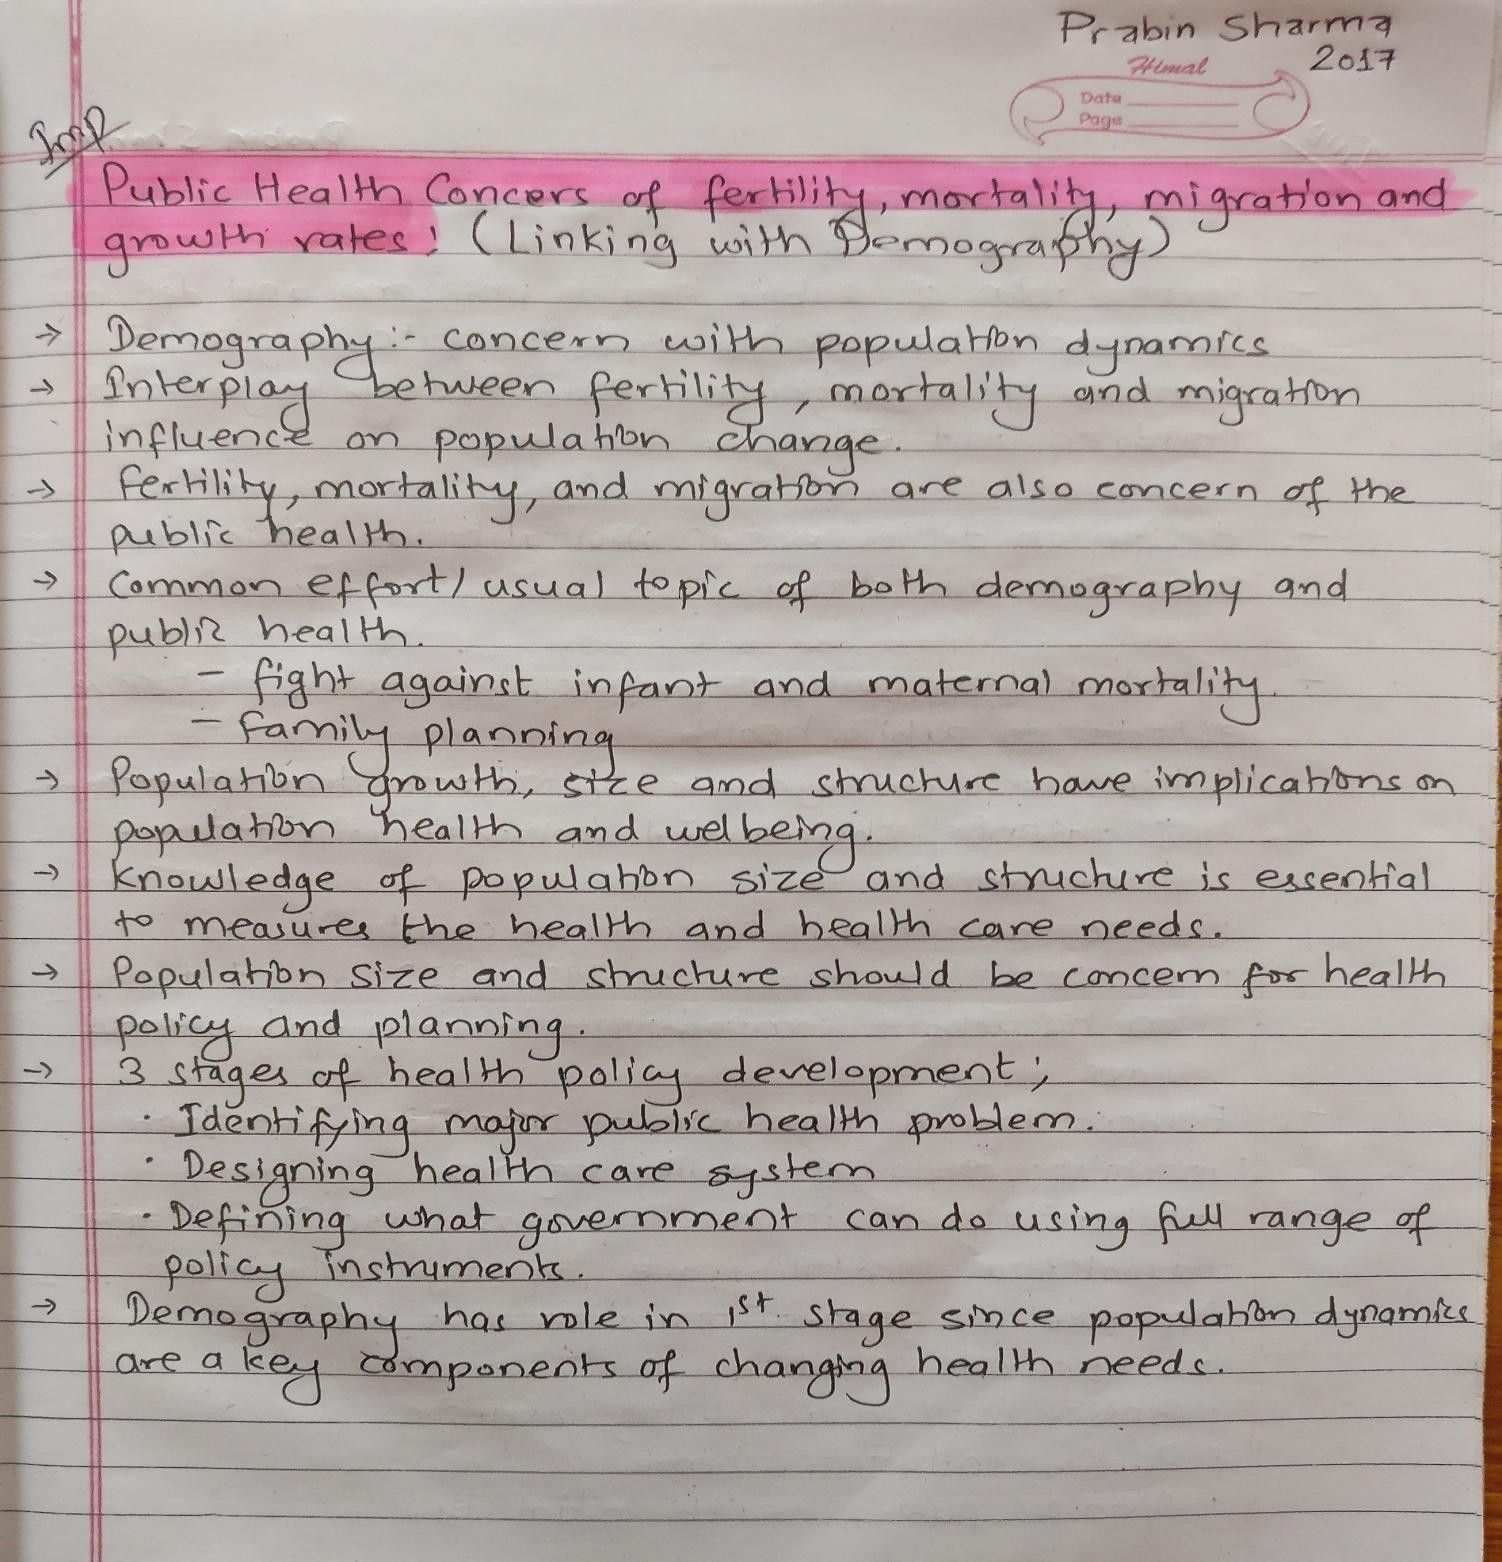 Prabin Sharma
2017
Himal
Date
Page
Imp
Public Health Concers of fertility, mortality, migration and
growth rates: (Linking with Demography)
→ Demography:- concern with population dynamics
→ Interplay between fertility, mortality and migration
influence on population change.
→ fertility, mortality, and migration are also concern of the
public health.
→ Common effort/usual topic of both demography and
public health.
- fight against infant and maternal mortality.
- family planning
→ Population growth, size and structure have implications on
population health and welbeing.
→ Knowledge of population size and structure is essential
to measures the health and health care needs.
→ Population size and structure should be concern for health
policy and planning.
→ 3 stages of health policy development;
· Identifying major public health problem.
· Designing health care system
· Defining what government can do using full range of
policy instruments.
→ Demography has role in 1st stage since population dynamics
are a key components of changing health needs.